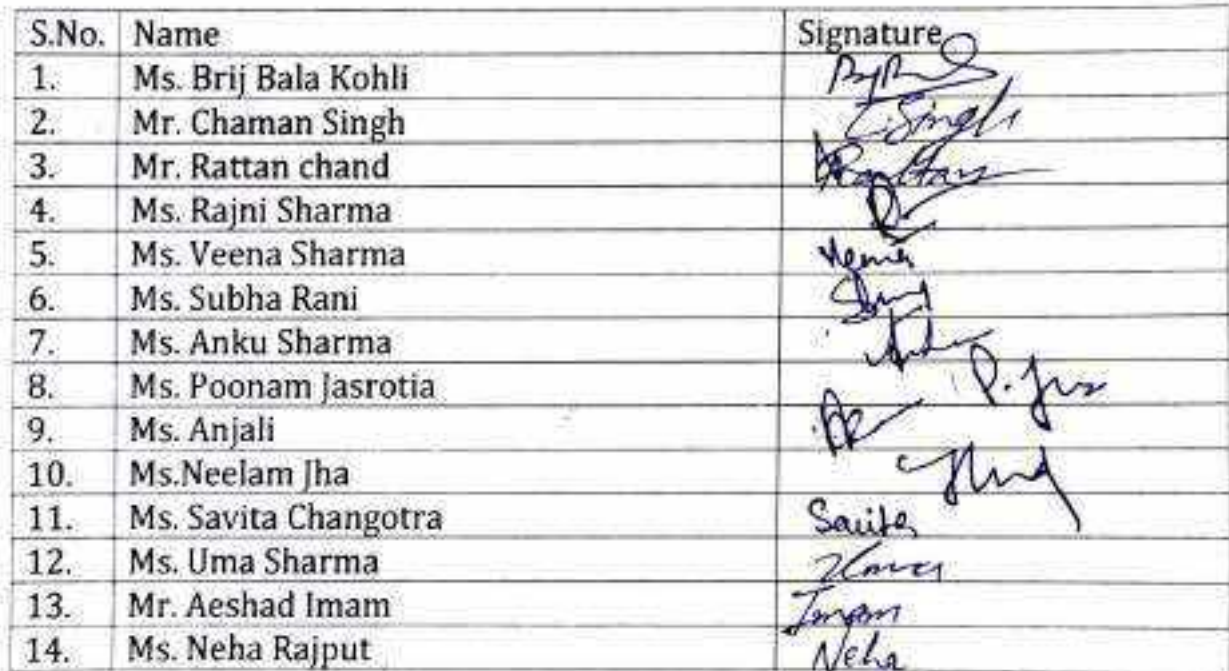 S.No. Name Signature
1. Ms. Brij Bala Kohli
2. Mr. Chaman Singh C.Singh
3. Mr. Rattan chand Rattan
4. Ms. Rajni Sharma
5. Ms. Veena Sharma Veena
6. Ms. Subha Rani
7. Ms. Anku Sharma
8. Ms. Poonam Jasrotia P. Jas
9. Ms. Anjali
10. Ms.Neelam Jha
11. Ms. Savita Changotra Savita
12. Ms. Uma Sharma Uma
13. Mr. Aeshad Imam Imam
14. Ms. Neha Rajput Neha